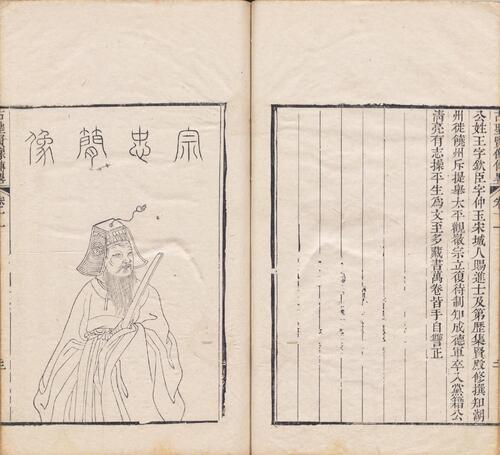 古聖賢像傳畧
公姓王字欽臣字仲玉宋城人賜進士及第歷集賢殿修撰知湖
州徙饒州斥提舉太平觀徽宗立復待制知成德軍卒入黨籍公
清亮有志操平生爲文至多藏書萬卷皆手自讐正
宗忠簡像
古聖賢像傳畧 卷十一